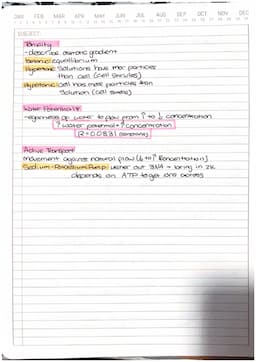 JAN FEB MAR APR MAY JUN JUL AUG SEP OCT NOV DEC
SUBJECT:
Tonicity
- describe osmotic gradient
Isotonic: equilibrium
Hypertonic: Solutions have mor particles
than cell (Cell shrivles)
Hypotonic: Cell has more particles than
Solution (Cell swells)
Water Potential
- eagerness of water to flow from ↑ to ↓ concentration
↑ Water potential = ↑ concentration
R = 0.0831
Active Transport
movement against natural flow (↓ to ↑ concentration)
Sodium-Potassium Pump: usher out 3NA + bring in 2K
depends on ATP to get ions across